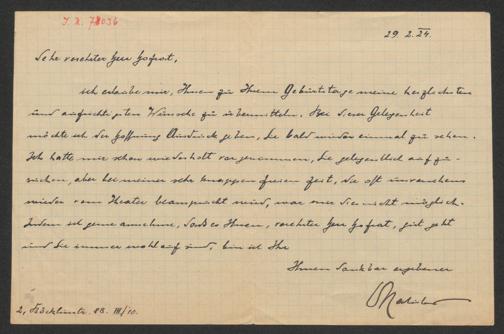 I. N. 78036
29. 2. 24.
Sehr verehrter Herr Hofrat,
ich erlaube mir, Ihnen zu Ihrem Geburtstage meine herzlichsten
und aufrichtigsten Wünsche zu übermitteln. Bei dieser Gelegenheit
möchte ich der Hoffnung Ausdruck geben, Sie bald wieder einmal zu sehen.
Ich hatte mir schon wiederholt vorgenommen, Sie gelegentlich aufzu-
suchen, aber bei meiner sehr knappen freien Zeit, die oft unversehens
wieder vom Theater beansprucht wird, war mir dies nicht möglich.
Indem ich gerne annehme, dass es Ihnen, verehrter Herr Hofrat, gut geht
und Sie immer wohlauf sind, bin ich Ihr
Ihnen dankbar ergebener
2, Böcklinstr. 88. III/10.